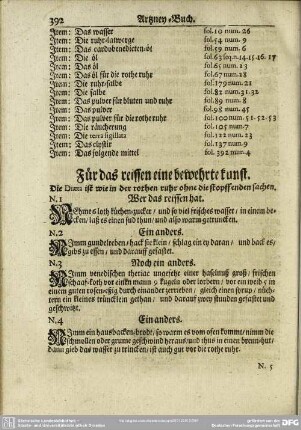 392 Artzney-Buch.
Item: Das wasser fol. 10 num. 26
Item: Die ruhr-latwerge fol. 54 num. 9
Item: Das cardobenedicten-öl fol. 59 num. 3
Item: Die öl fol. 63 sq. n. 14. 15. 46. 17
Item: Das öl fol. 65 num. 13
Item: Das öl für die rothe ruhr fol. 67 num. 28
Item: Die ruhr-salbe fol. 179 num. 21
Item: Die salbe fol. 82 num. 31. 32
Item: Das pulver für bluten und ruhr fol. num. 8
Item: Das pulver fol. 98 num. 45
Item: Das pulver für die rothe ruhr fol. 100 num. 51. 52. 53
Item: Die räucherung fol. 105 num. 7
Item: Die terra sigillata fol. 122 num. 23
Item: Das clystir fol. 137 num. 9
Item: Das folgende mittel fol. 392 num. 4
Für das reissen eine bewehrte kunst.
Die Diæta ist wie in der rothen ruhr ohne die stopffenden sachen,
N. 1 Wer das reissen hat.
Nehme 1. loth zucker / und so viel frisches wasser / in einem be-
cken / laß es einen sud thun / und also warm getruncken.
N. 2 Ein anders.
Nimm gundelreben / hack sie klein / schlag ein ey daran / und back es /
gibs zu essen / und darauf gefastet.
N. 3 Noch ein anders.
Nimm venedischen theriac ungefehr einer haselnuß groß / frischen
schaaf-koth vor einen mann / vor ein weib / in
einem guten rosen-essig durch einander zertrieben / gleich einen syrup / nüch-
tern ein kleines trüncklein gethan / und darauf zwey stunden gefastet und
geschwitzt.
N. 4 Ein anders.
Nimm ein hausbacken-brodt / so warm es vom ofen komme / nimm die
schmollen oder grume geschwind heraus / und thus in einen brenn-hut /
dann gieb das wasser zu trincken / ist auch gut vor die rothe ruhr.
N. 5